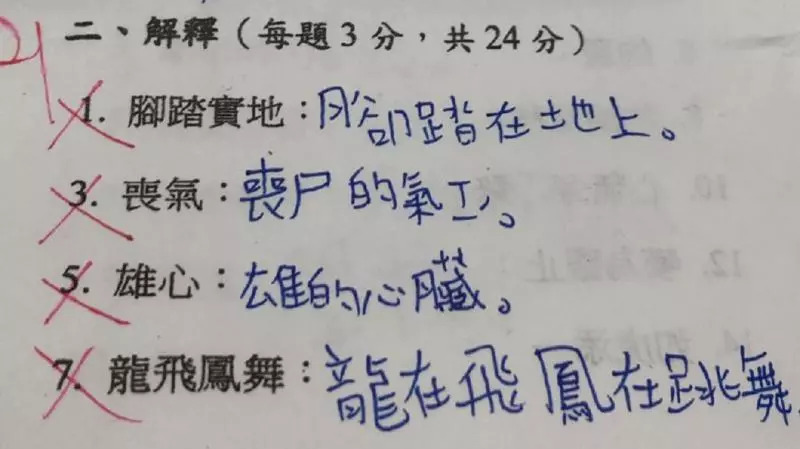 二、解釋（每題3分，共24分）
1. 腳踏實地：腳踏在土地上。
3. 喪氣：喪尸的氣工。
5. 雄心：雄的心臟。
7. 龍飛鳳舞：龍在飛 鳳在跳舞.